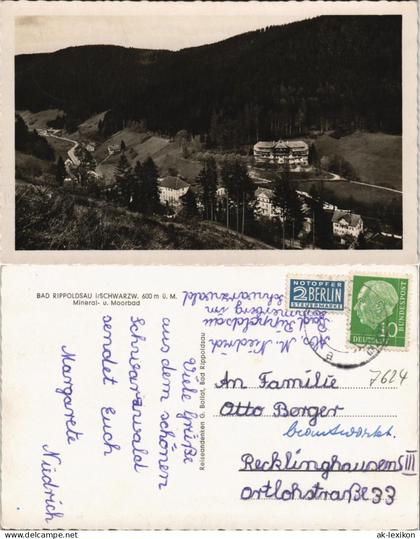 BAD RIPPOLDSAU i/SCHWARZW. 600 m Ü. M.
Mineral- u. Moorbad
Viele Grüße
aus dem schönen
Schwarzwald
sendet Euch
Margarete Niedrich
Reiseandenken G. Bollat, Bad Rippoldsau
Abs. M. Niedrich
Bad Rippoldsau
im
Schwarzwald
NOTOPFER
2 BERLIN
STEUERMARKE
10
DEUTSCHE BUNDESPOST
7624
An Familie
Otto Berger
beantwortet.
Recklinghausen S III
Ortlohstraße 33
www.ak-ansichtskarten.de
© ak-lexikon